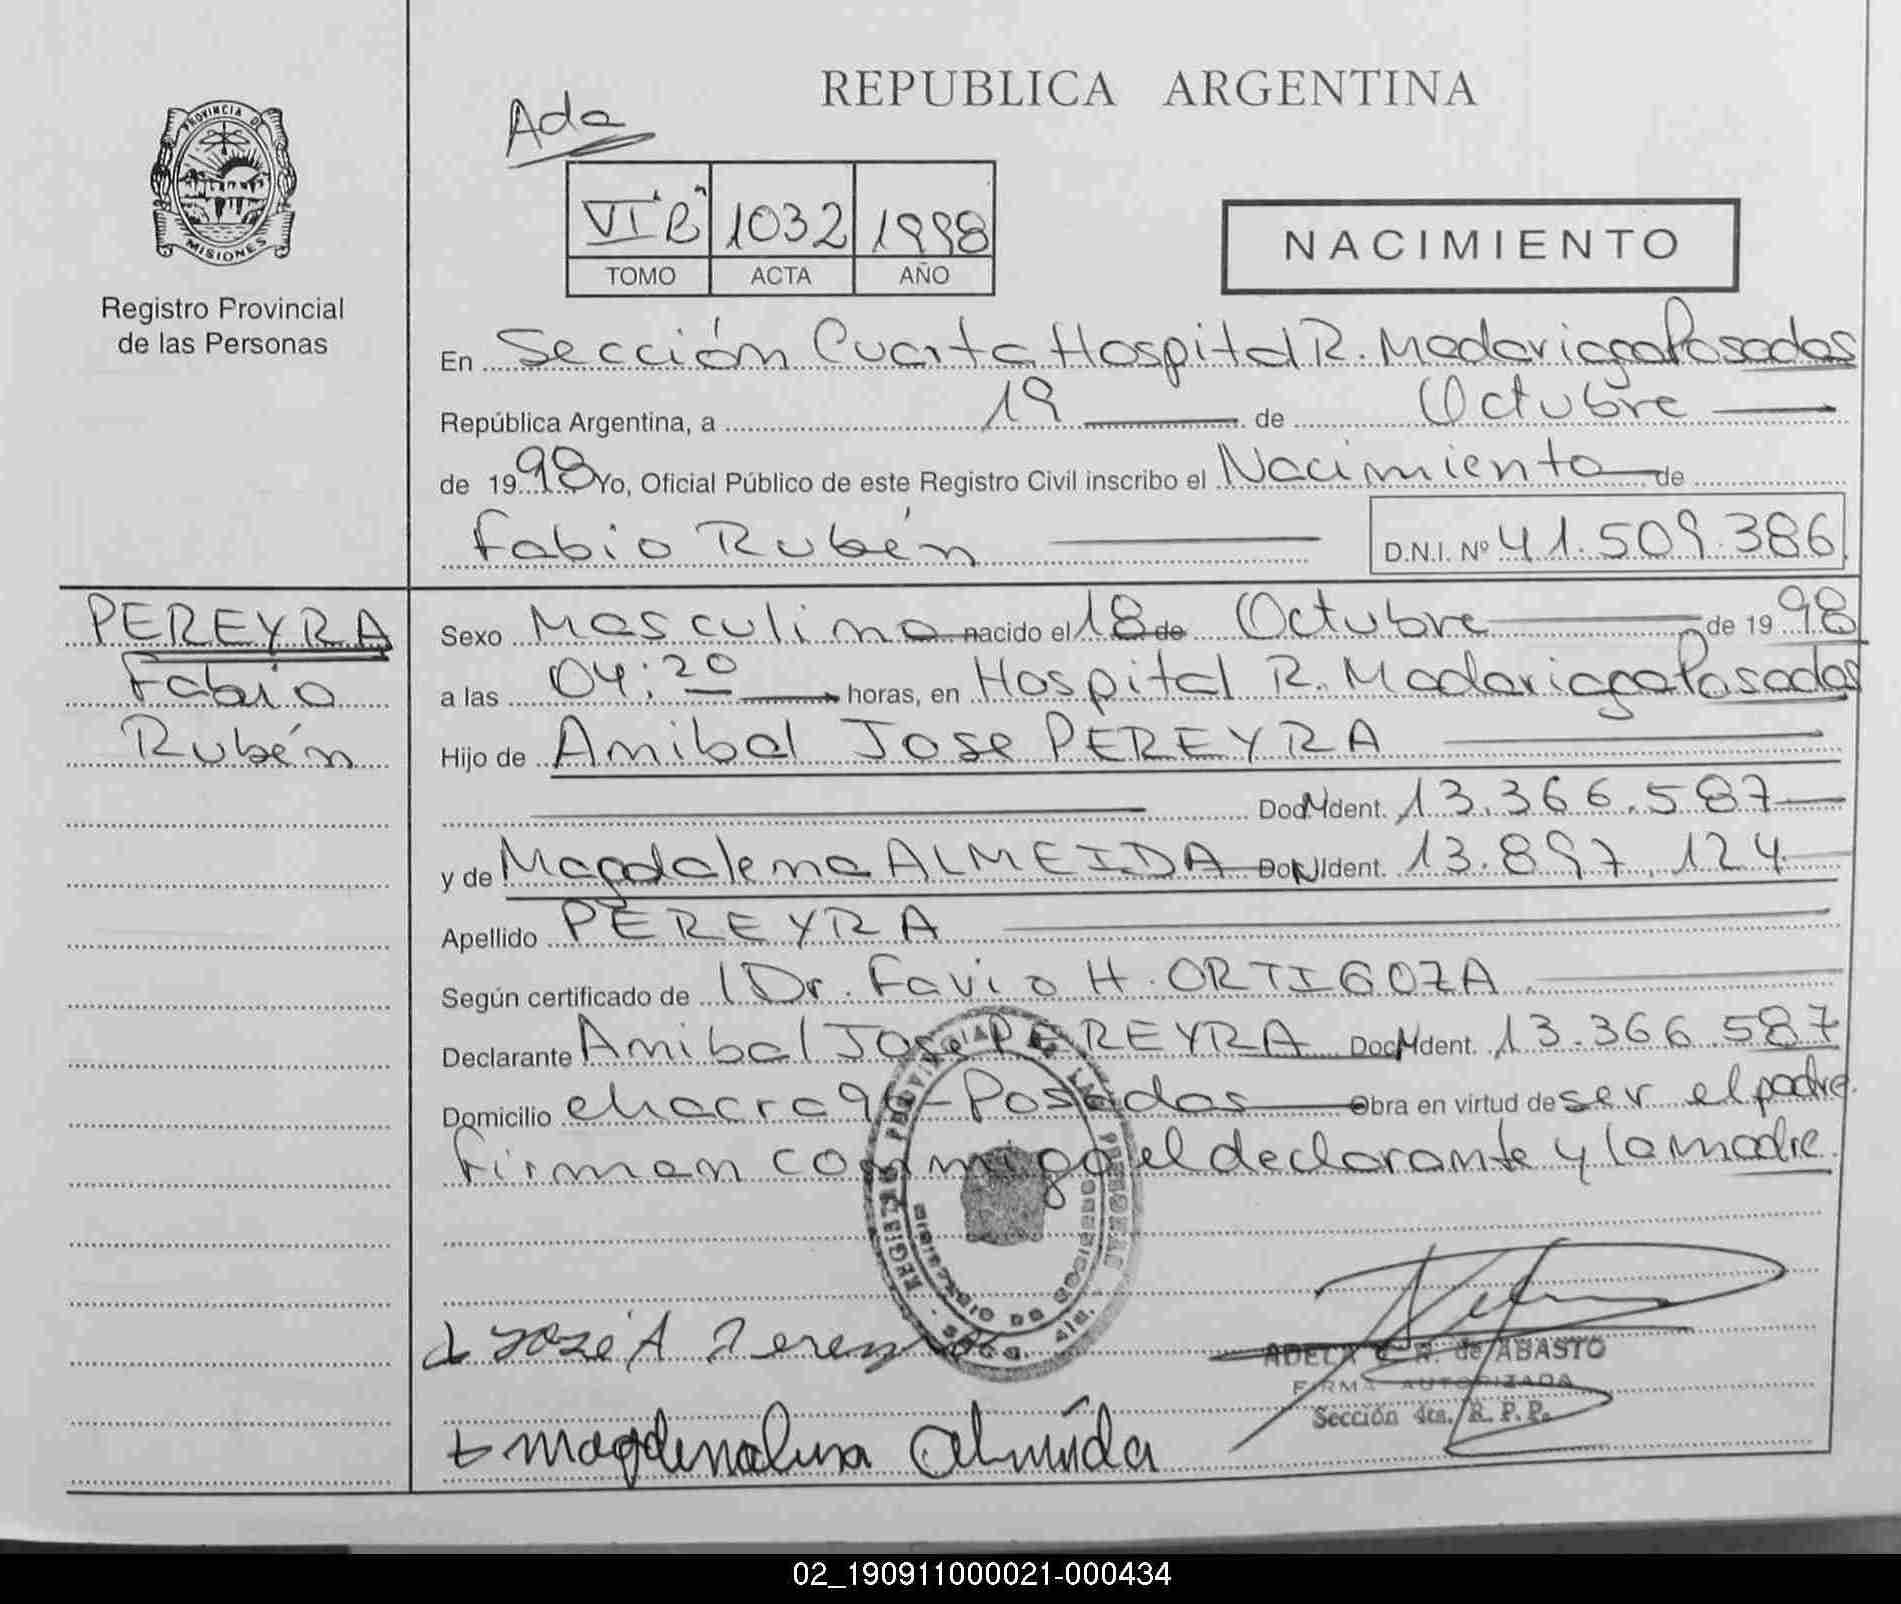 REPUBLICA ARGENTINA
Ada
PROVINCIA DE
MISIONES
Registro Provincial
de las Personas
VI "B" 1032 1998
TOMO ACTA AÑO
NACIMIENTO
En Sección Cuarta Hospital R. Madariaga Posadas
República Argentina, a 19 de Octubre
de 1998 Yo, Oficial Público de este Registro Civil inscribo el Nacimiento de
Fabio Rubén D.N.I. Nº 41.509.386
PEREYRA
Fabio
Rubén
Sexo Masculino nacido el 18 de Octubre de 1998
a las 04:20 horas, en Hospital R. Madariaga Posadas
Hijo de Anibal Jose PEREYRA
Doc. Ident. 13.366.587
y de Magdalena ALMEIDA Doc. Ident. 13.897.124
Apellido PEREYRA
Según certificado de Dr. Favio H. ORTIGOZA
Declarante Anibal Jose PEREYRA Doc. Ident. 13.366.587
Domicilio chacra 96 - Posadas Obra en virtud de ser el padre.
Firman conmigo el declarante y la madre.
José A Pereyra
ADELA C. R. de ABASTO
FIRMA AUTORIZADA
Sección 4ta. R. P. P.
Almeida
02_190911000021-000434